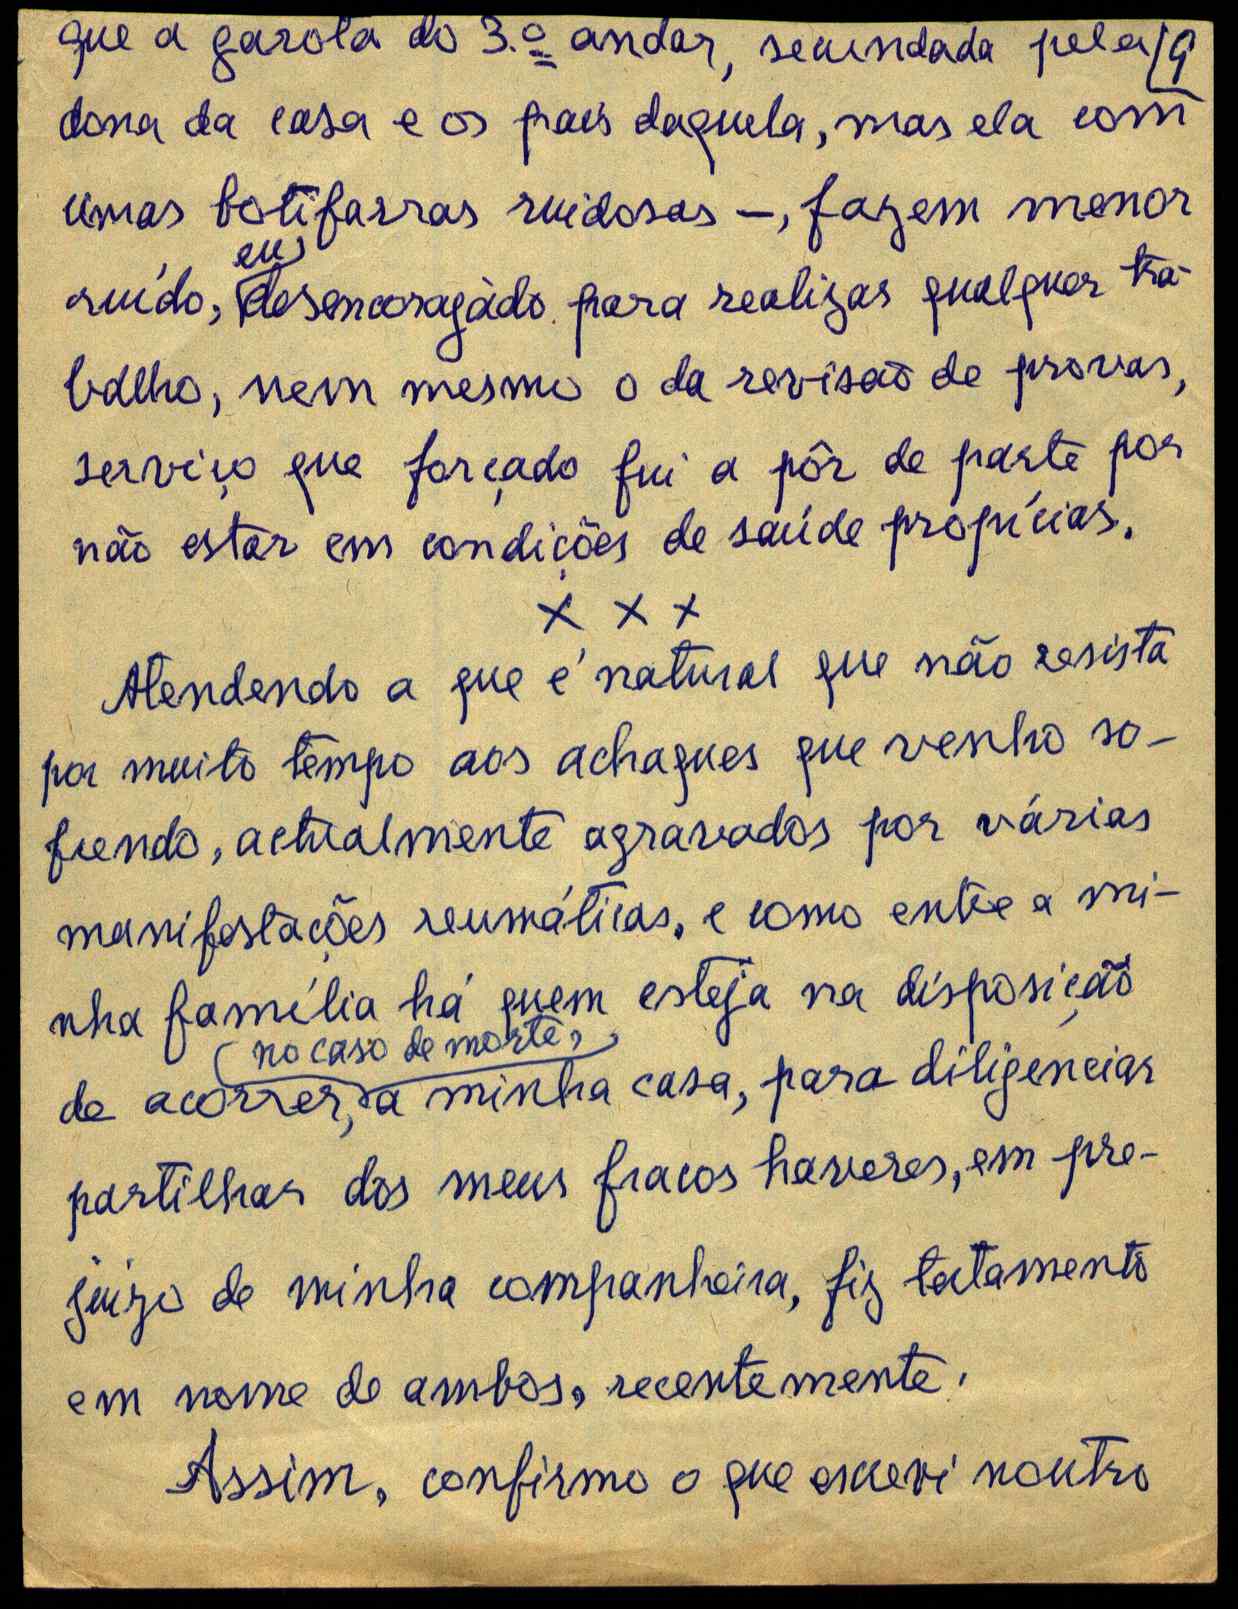 que a garota do 3.º andar, secundada pela 9
dona da casa e os pais daquela, mas ela com
umas botifarras ruidosas —, fazem menor
eu
ruído, desencoragàdo para realizar qualquer tra-
balho, nem mesmo o da revisão de provas,
serviço que forçado fui a pôr de parte por
não estar em condições de saúde propícias.
x x x
Atendendo a que é natural que não resista
por muito tempo aos achaques que venho so-
frendo, actualmente agravados por várias
manifestações reumáticas, e como entre a mi-
nha família há quem esteja na disposição
(no caso de morte,)
de acorrer, a minha casa, para diligenciar
partilhar dos meus fracos haveres, em pre-
juízo de minha companheira, fiz testamento
em nome de ambos, recentemente.
Assim, confirmo o que escrevi noutro